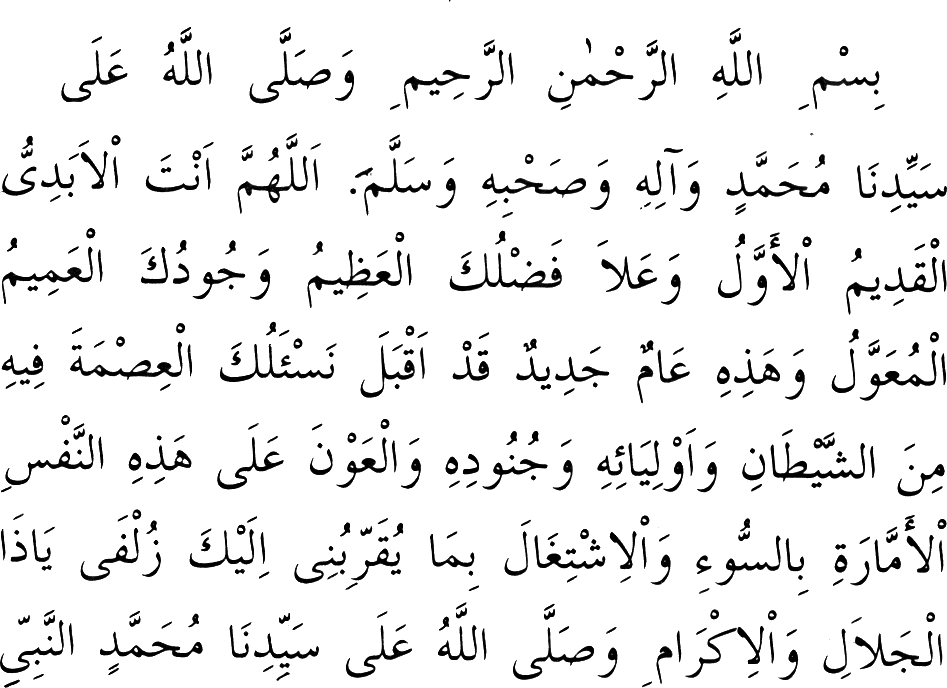 بِسْمِ اللَّهِ الرَّحْمٰنِ الرَّحِيمِ وَصَلَّى اللَّهُ عَلَى
سَيِّدِنَا مُحَمَّدٍ وَآلِهِ وَصَحْبِهِ وَسَلَّمَ. اَللَّهُمَّ اَنْتَ اْلاَبَدِىُّ
الْقَدِيمُ اْلأَوَّلُ وَعَلاَ فَضْلُكَ الْعَظِيمُ وَجُودُكَ الْعَمِيمُ
الْمُعَوَّلُ وَهَذِهِ عَامٌ جَدِيدٌ قَدْ اَقْبَلَ نَسْئَلُكَ الْعِصْمَةَ فِيهِ
مِنَ الشَّيْطَانِ وَاَوْلِيَائِهِ وَجُنُودِهِ وَالْعَوْنَ عَلَى هَذِهِ النَّفْسِ
اْلأَمَّارَةِ بِالسُّوءِ وَاْلاِشْتِغَالَ بِمَا يُقَرِّبُنِى اِلَيْكَ زُلْفَى يَاذَا
الْجَلاَلِ وَاْلاِكْرَامِ وَصَلَّى اللَّهُ عَلَى سَيِّدِنَا مُحَمَّدٍ النَّبِيِّ